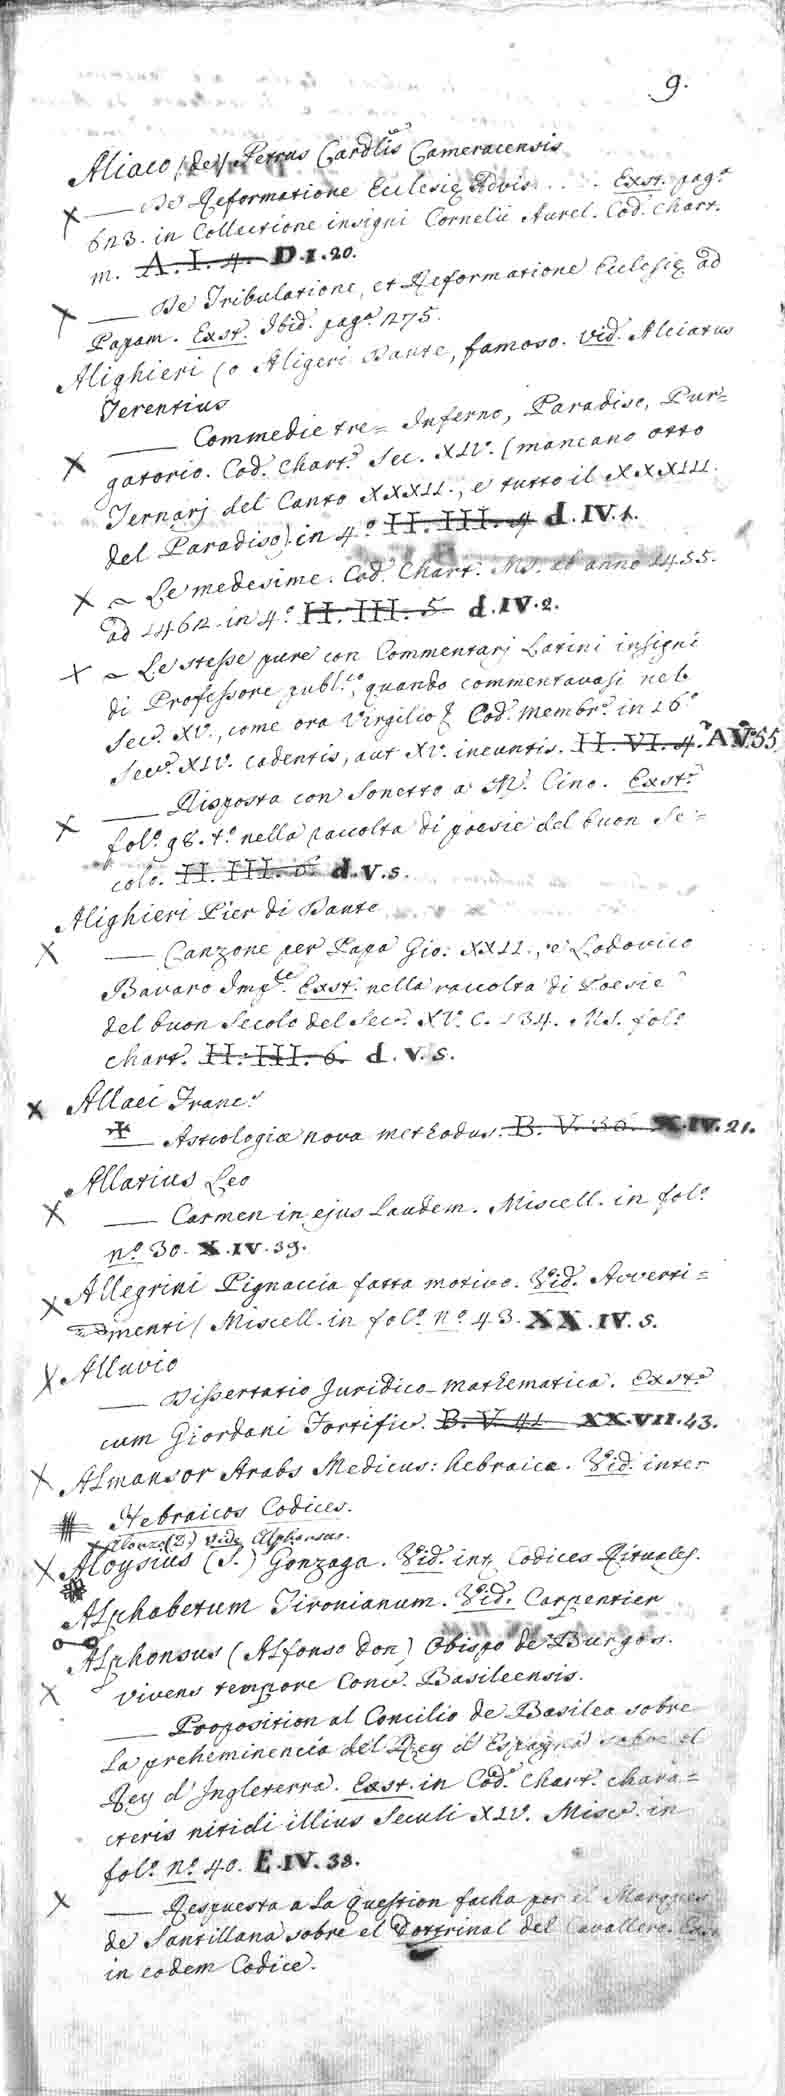 9.
Aliaco (de) Petrus Cardlis Cameracensis
— De Reformatione Eclesię Advis . . . . Exst. pag.ª
623. in Collectione insigni Cornelii Aurel. Cod. Chart.
m. A. I. 4. D.I.20.
— De Tribulatione, et Reformatione Eclesię ad
Papam. Exst. Ibid. pag.ª 275.
Alighieri (o Aligeri Dante, famoso. vid. Alciatus
Terentius
— Commedie tre = Inferno, Paradiso, Pur=
gatorio. Cod. Chart. Sec. XIV. (mancano otto
Ternarj del Canto XXXII., e tutto il XXXIII.
del Paradiso). in 4.º II. III. 4 d.IV.1.
~ Le medesime. Cod. Chart. MS. ab anno 1455.
ad 1462. in 4.º II. III. 5 d.IV.2.
~ Le stesse pure con Commentarj Latini insigni
di Professore publ.co, quando commentavasi nel
Sec.º XV., come ora Virgilio & Cod. Membr. in 16º
Sec.º XIV. cadentis, aut XV. ineuntis. II. VI. 4. A V.55
— Risposta con Sonetto a M. Cino. Exst.
fol.º 98. t.º nella raccolta di poesie del buon Se=
colo. II. III. 6. d.V.5.
Alighieri Pier di Dante
— Canzone per Papa Gio: XXII., e Lodovico
Bavaro Imp.re Exst. nella raccolta di Poesie
del buon Secolo del Sec.º XV. C. 134. MS. fol.º
chart. II. III. 6. d.V.5.
Allaei Franc.i
— Astrologiæ nova methodus. B. V. 36. X.IV.21.
Allatius Leo
— Carmen in ejus Laudem. Miscell. in fol.º
n.º 30. X.IV.39.
Allegrini Pignaccia fatta motivo. Vid. Avverti=
menti / Miscell. in fol.º n.º 43. XX.IV.5.
Alluvio
— Dissertatio Juridico-mathematica. Exst.
cum Giordani Fortific. B. V. 41 XX.VII.43.
Almansor Arabs Medicus: hebraice. Vid. inter
Hebraicos Codices.
Alonzo (D.) vide Alphonsus.
Aloysius (S.) Gonzaga. Vid. int. Codices Rituales.
Alphabetum Tironianum. Vid. Carpentier
Alphonsus (Alfonso Don) Obispo de Burgos.
vivens tempore Conc. Basileensis.
— Proposition al Concilio de Basilea sobre
La preheminencia del Rey d'España sobre el
Rey d'Ingleterra. Exst. in Cod. Chart. chara=
cteris nitidi illius Seculi XIV. Misc. in
fol.º n.º 40. E.IV.38.
— Respuesta a la question facha por el Marques
de Santillana sobre el Dottrinal del Cavallero. Exst.
in eodem Codice.